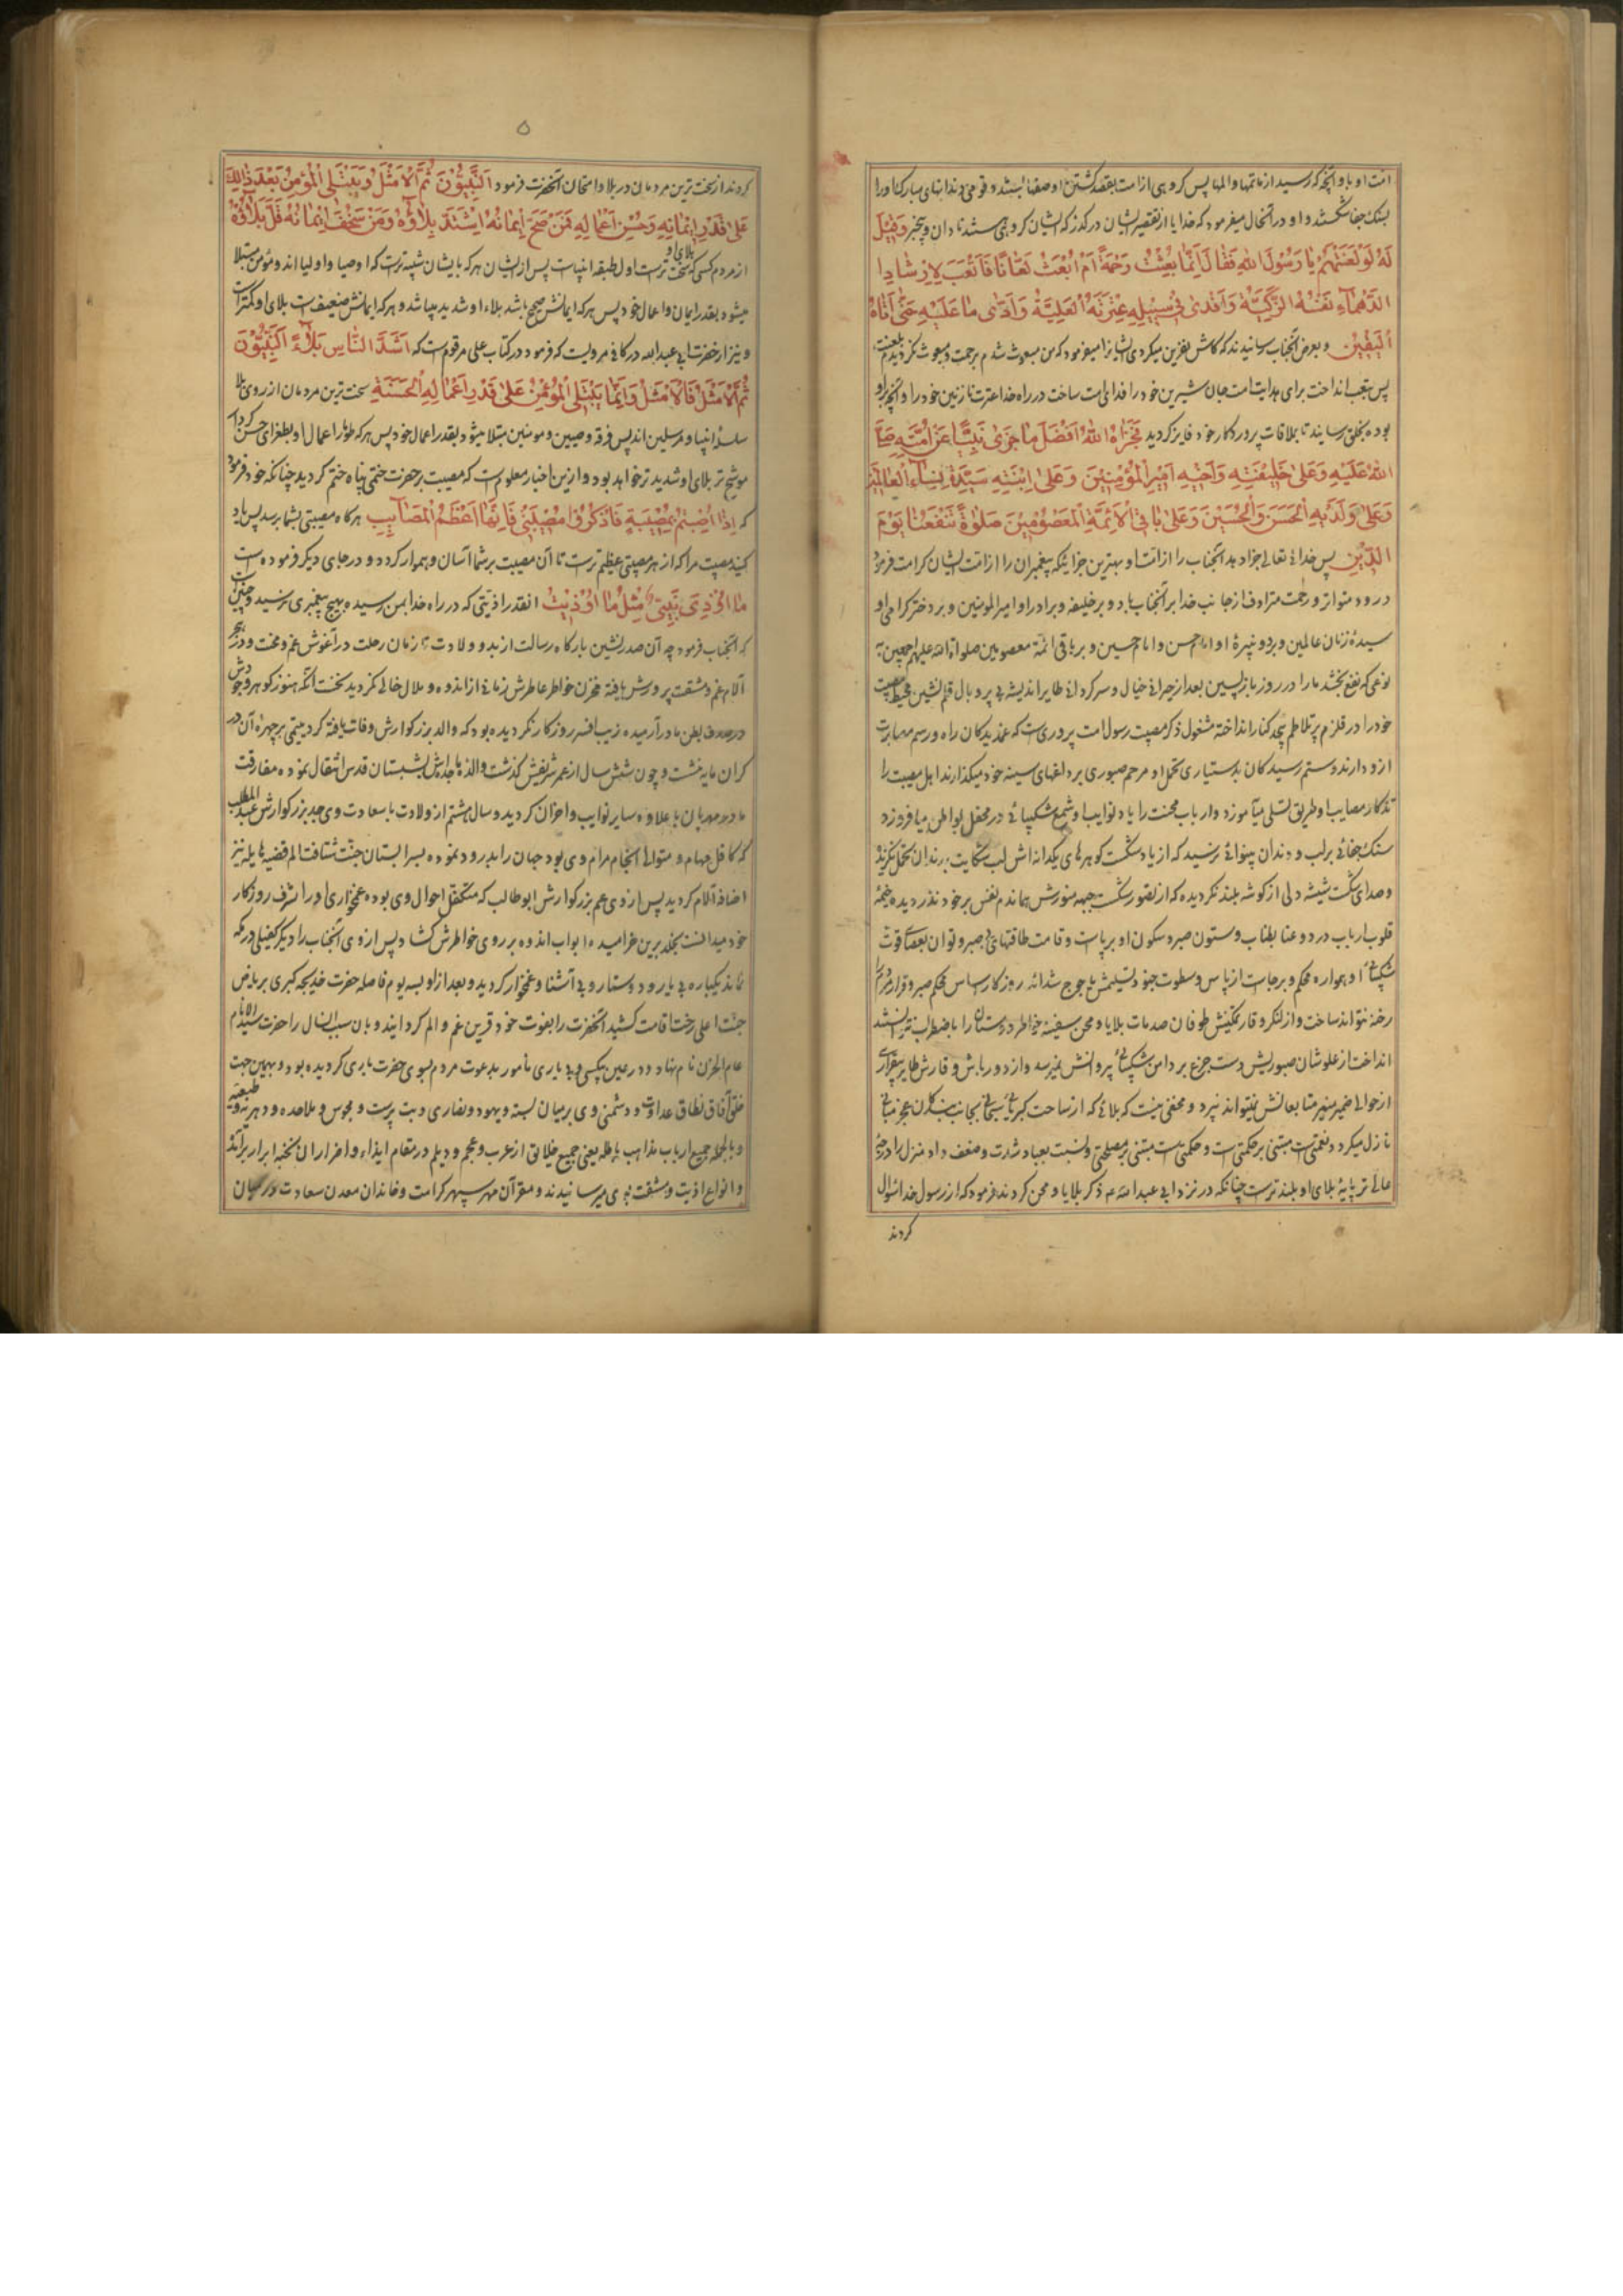 امت او باو آنچه که رسید از ماتمها و المها پس کروهی از امت بقصد کشتن او صفها بستند و قومی دندانهای مبارک او را
بسنک جفا شکستند و او در آنحال میفرمود که خدایا از تقصیر ایشان درگذر که ایشان کروهی هستند نادان و بیخبر وَقِیلَ
لَهُ لَوْ لَعَنْتَهُمْ یا رَسُولَ اللهِ فَقالَ اِنَّما بُعِثْتُ رَحْمَةً لَمْ اُبْعَثْ لَعّانًا فَاَتْعَبَ لِاِرْشادِ
الدَّهْماءِ نَفْسَهُ الزَّکِیَّةَ وَاَفْدی فی سَبیلِهِ عِتْرَتَهُ الْعَلِیَّةَ وَاَدّی ما عَلَیْهِ حَتّی اَتاهُ
الْیَقینُ و بعرض آنجناب رسانیدند که کاش نفرین میکردی ایشانرا میفرمود که من مبعوث شدم برحمت و مبعوث نکردیدم بلعنت
پس بتعب انداخت برای هدایت امت جان شیرین خود را و فدای امت ساخت در راه خدا عترت نازنین خود را و آنچه براو
بود بخلق رسانید تا بملاقات پروردکار خود فایز کردید فَجَزاهُ اللهُ اَفْضَلَ ما جَزی نَبِیًّا عَنْ اُمَّتِهِ صَلَّی
اللهُ عَلَیْهِ وَعَلی خَلیفَتِهِ وَاَخیهِ اَمیرِ الْمُؤْمِنینَ وَعَلی اِبْنَتِهِ سَیِّدَةِ نِساءِ الْعالَمینَ
وَعَلی وَلَدَیْهِ الْحَسَنِ وَالْحُسَیْنِ وَعَلی باقی الْاَئِمَّةِ الْمَعْصُومینَ صَلوةً تَنْفَعُنا یَوْمَ
الدّینِ پس خدای تعالی جزا دهد آنجناب را از امت او بهترین جزائیکه پیغمبران را از امت ایشان کرامت فرمود
درود متواتر و رحمت مترادف از جانب خدا بر آنجناب باد و بر خلیفه و برادر او امیرالمومنین و بر دختر کرامی او
سیدهٔ زنان عالمین و بر دو نبیرهٔ او امام حسن و امام حسین و بر باقی ائمهٔ معصومین صلواة الله علیهم اجمعین
نوعی که نفع بخشد ما را در روز بازپسین بعد از حیرانی خیال و سرکردانی طایر اندیشه بی پر و بال قلم نشین محیط مصیبت
خود را در قلزم پرتلاطم بیحد کنار انداخته مشغول ذکر مصیبت رسول امت پروریست که غمدیدکان راه و رسم مصابرت
ازو دارند و ستم رسیدکان بدستیاری تحمل او مرهم صبوری بر داغهای سینه خود میکذارند اهل مصیبت را
تذکار مصایب او طریق تسلی میآموزد و ارباب محنت را یاد نوایب او شمع شکیبائی در محفل بواطن میافروزد
سنک جفائی بر لب و دندان پینوائی نرسید که از یاد شکست کوهرهای یکدانه‌اش لب شکایت بدندان تحمل نکزید
و صدای شکست شیشه دلی از کوشه بلند نکردیده که از تصور شکست جبهه منورش هماندم نفس بر خود ندزدیده خیمهٔ
قلوب ارباب درد و عنا بطناب و ستون صبر و سکون او برپاست و قامت طاقتهای بی صبر و توان بعصای قوت
شکیبائی او همواره محکم و برجاست از پاس و سطوت جنود تسلیمش یاجوج شداید روزکار اساس محکم صبر و قرار مردم را
رخنه نتواند ساخت و از لنکر وقار تمکینش طوفان صدمات بلایا و محن سفینه خواطر دوستان را باضطراب نتوانند
انداخت از علو شان صبوریش دست جزع بر دامن شکیبائی پروانش نمیرسد و از دورباش وقارش طایر بیقراری
از حوالی ضمیر منیر متابعانش نمیتواند پرید و مخفی نیست که بلائی که از ساحت کبریای سبحانی بجانب بندکان عجز مبانی
نازل میکردد نعمتیست مبتنی بر حکمتی و حکمتیست مبتنی بر مصلحتی و نسبت بعباد شدت و ضعف دارد منزل را درجهٔ
عالی تر پایهٔ بلای او بلندترست چنانکه در نزد ابی عبدالله ع ذکر بلایا و محن کردند فرمود که از رسول خدا سؤال
کردند
۵
کردند از سخت ترین مردمان در بلا و امتحان آنحضرت فرمود اَلنَّبِیُّونَ ثُمَّ الْاَمْثَلُ وَیُبْتَلَی الْمُؤْمِنُ بَعْدَ ذلِکَ
عَلی قَدْرِ اِیمانِهِ وَحُسْنِ اَعْمالِهِ فَمَنْ صَحَّ اِیمانُهُ اِشْتَدَّ بَلاؤُهُ وَمَنْ سَخُفَ اِیمانُهُ قَلَّ بَلاؤُهُ
از مردم کسی که بلای او سخت ترست اول طبقه انبیاست پس از ایشان هرکه بایشان شبیه ترست که اوصیا و اولیااند و مؤمن مبتلا
میشود بقدر ایمان و اعمال خود پس هرکه ایمانش صحیح باشد بلاء او شدید میباشد و هرکه ایمانش ضعیفست بلای او کمترست
و نیز از حضرت ابی عبدالله در کافی مرویست که فرمود در کتاب علی مرقوم است که اَشَدَّ النّاسِ بَلاءً اَلنَّبِیُّونَ
ثُمَّ الْاَمْثَلُ فَالْاَمْثَلُ وَاِنَّما یُبْتَلَی الْمُؤْمِنُ عَلی قَدْرِ اَعْمالِهِ الْحَسَنَةِ سخت ترین مردمان از روی بلا
سلسلهٔ انبیا و مرسلین‌اند پس فرقه وصیین و مومنین مبتلا میشود بقدر اعمال خود پس هرکه طومار اعمال او بطغرای حسن کردار
موشح تر بلای او شدیدتر خواهد بود و ازین اخبار معلوم است که مصیبت بر حضرت ختمی پناه ختم کردید چنانکه خود فرموده
که اِذا اُصِبْتُمْ بِمُصیبَةٍ فَاذْکُرُوا مُصیبَتی فَاِنَّها اَعْظَمُ الْمَصآئِبِ هرکاه مصیبتی بشما برسد پس یاد
کنید مصیبت مرا که از هر مصیبتی عظیم ترست تا آن مصیبت بر شما آسان و هموار کردد و در جای دیکر فرموده است
ما اُوذِیَ نَبِیٌّ مِثْلَ ما اُوذیتُ آنقدر اذیتی که در راه خدا بمن رسیده بهیچ پیغمبری نرسیده و چنین
که آنجناب فرمود چه آن صدرنشین بارکاه رسالت از بدو ولادت تا زمان رحلت در آغوش غم و محنت و در حجر
آلام غم و مشقت پرورش یافته مخزن خواطر عاطرش زمانی از اندوه و ملال خالی نکردید نخست آنکه هنوز کوهر وجودش
در صدف بطن مادر آرمیده زیب افسر روزکار نکردیده بود که والد بزرکوارش وفات یافته کرد یتیمی بر چهرهٔ آن در
کران مایه نشست و چون شش سال از عمر شریفش کذشت والدهٔ ماجده‌اش بشبستان قدس انتقال نموده مفارقت
مادر مهربان علاوه سایر نوایب و احزان کردید و سال هشتم از ولادت باسعادت وی جد بزرکوارش عبدالمطلب
که کافل مهام و متولی انجام مرام وی بود جهان را بدرود نموده بسرابستان جنت شتافت الم قضیه هایله نیز
اضافهٔ آلام کردید پس از وی عم بزرکوارش ابوطالب که متکفل احوال وی بود و غمخواری او را شرف روزکار
خود میدانست بخلد برین خرامیده ابواب اندوه بر روی خواطرش کشاد و پس از وی آنجناب را دیکر کفیلی در مکه
نماند یکباره بی یار و دوستار و بی آشنا و غمخوار کردید و بعد از او بسه یوم فاصله حضرت خدیجه کبری بریاض
جنت اعلی رخت اقامت کشید آنحضرت را بفوت خود قرین غم و الم کردانید و بان سبب آنسال را حضرت سید الانام
عام الحزن نام نهاد و در عین بیکسی و بی یاری مامور بدعوت مردم بسوی حضرت باری کردیده بود و بهمین جهت
خلق آفاق نطاق عداوت و دشمنی وی بر میان بسته و یهود و نصاری و بت پرست و مجوس و ملاحده و دهریه و طبیعیه
و بالجمله جمیع ارباب مذاهب باطله یعنی جمیع خلایق از عرب و عجم و دیلم در مقام ایذاء و اضرار آن نخبه ابرار برآمدند
و انواع اذیت و مشقت بوی میرسانیدند و مقر آن مهر سپهر کرامت و خاندان معدن سعادت در میان